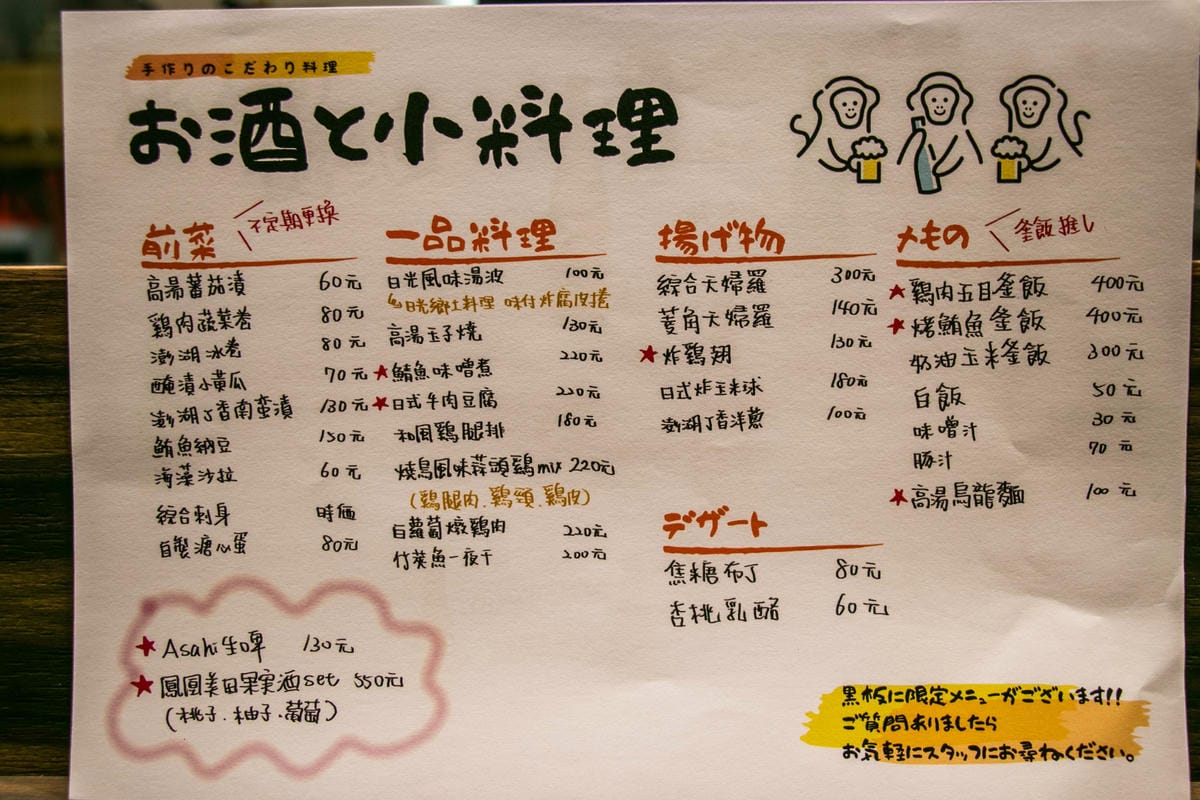 手作りのこだわり料理
お酒と小料理
前菜
不定期更換
高湯蕃茄漬 60元
鶏肉蔬菜巻 80元
澎湖冰卷 80元
醃漬小黄瓜 70元
澎湖丁香南蛮漬 130元
鮪魚納豆 150元
海藻沙拉 60元
綜合刺身 時価
自製溏心蛋 80元
一品料理
日光風味湯波 100元
日光郷土料理 味付炸腐皮捲
高湯玉子燒 130元
★鯖魚味噌煮 220元
★日式牛肉豆腐 220元
和風鶏腿排 180元
燒鳥風味蒜頭鶏mix 220元
(鶏腿肉.鶏頸.鶏皮)
白蘿蔔燉鶏肉 220元
竹莢魚一夜干 200元
揚げ物
綜合天婦羅 300元
菱角天婦羅 140元
★炸鶏翅 130元
日式炸玉米球 180元
澎湖丁香洋蔥 100元
デザート
焦糖布丁 80元
杏桃乳酪 60元
〆もの
釜飯推し
★鶏肉五目釜飯 400元
★烤鮪魚釜飯 400元
奶油玉米釜飯 300元
白飯 50元
味噌汁 30元
豚汁 70元
★高湯烏龍麵 100元
★Asahi生啤 130元
★鳳凰美田果実酒set 550元
(桃子.柚子.葡萄)
黒板に限定メニューがございます!!
ご質問ありましたら
お気軽にスタッフにお尋ねください。